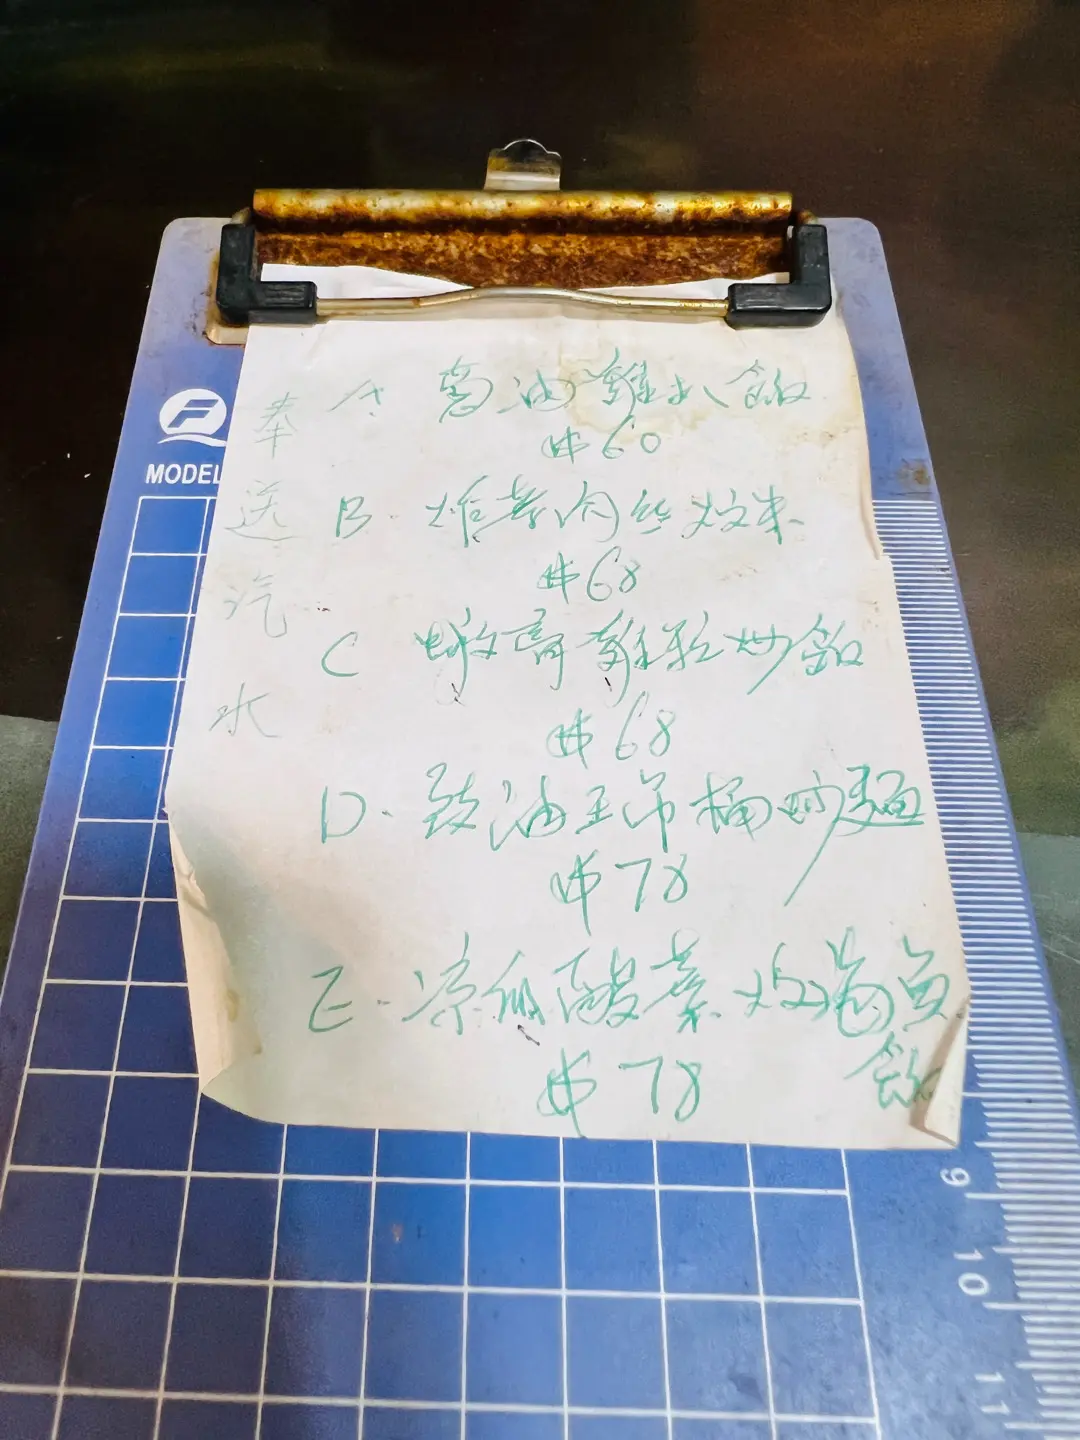 MODEL
奉送汽水
A. 葱油雞扒飯
#60
B. 肉丝炆米
#68
C. 雞粒炒飯
#68
D. 豉油王吊桶炒麵
#78
E. 凉瓜酸菜炆 魚飯
#78
9
10
11